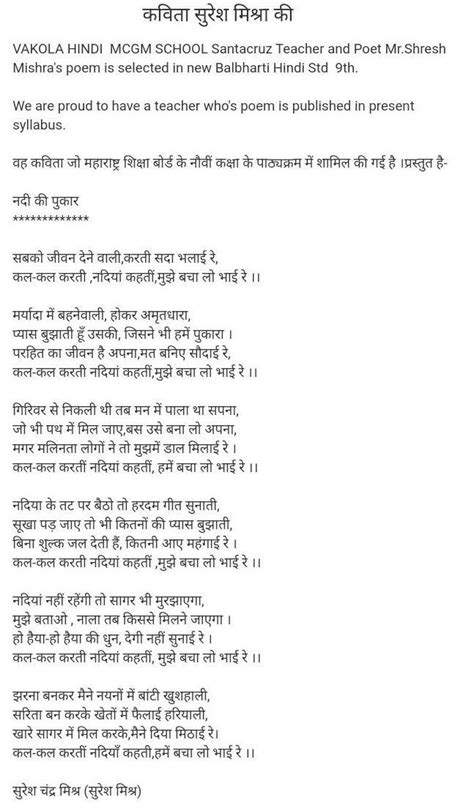 कविता सुरेश मिश्रा की
VAKOLA HINDI MCGM SCHOOL Santacruz Teacher and Poet Mr.Shresh
Mishra's poem is selected in new Balbharti Hindi Std 9th.
We are proud to have a teacher who's poem is published in present
syllabus.
वह कविता जो महाराष्ट्र शिक्षा बोर्ड के नौवीं कक्षा के पाठ्यक्रम में शामिल की गई है ।प्रस्तुत है-
नदी की पुकार
*************
सबको जीवन देने वाली,करती सदा भलाई रे,
कल-कल करती ,नदियां कहतीं,मुझे बचा लो भाई रे ।।
मर्यादा में बहनेवाली, होकर अमृतधारा,
प्यास बुझाती हूँ उसकी, जिसने भी हमें पुकारा ।
परहित का जीवन है अपना,मत बनिए सौदाई रे,
कल-कल करती नदियां कहतीं,मुझे बचा लो भाई रे ।।
गिरिवर से निकली थी तब मन में पाला था सपना,
जो भी पथ में मिल जाए,बस उसे बना लो अपना,
मगर मलिनता लोगों ने तो मुझमें डाल मिलाई रे ।
कल-कल करतीं नदियां कहतीं, हमें बचा लो भाई रे ।।
नदिया के तट पर बैठो तो हरदम गीत सुनाती,
सूखा पड़ जाए तो भी कितनों की प्यास बुझाती,
बिना शुल्क जल देती हैं, कितनी आए महंगाई रे ।
कल-कल करती नदियां कहतीं ,मुझे बचा लो भाई रे ।।
नदियां नहीं रहेंगी तो सागर भी मुरझाएगा,
मुझे बताओ , नाला तब किससे मिलने जाएगा ।
हो हैया-हो हैया की धुन, देगी नहीं सुनाई रे ।
कल-कल करती नदियां कहतीं, मुझे बचा लो भाई रे ।।
झरना बनकर मैने नयनों में बांटी खुशहाली,
सरिता बन करके खेतों में फैलाई हरियाली,
खारे सागर में मिल करके,मैने दिया मिठाई रे।
कल-कल करतीं नदियाँ कहती,हमें बचा लो भाई रे ।।
सुरेश चंद्र मिश्र (सुरेश मिश्र)